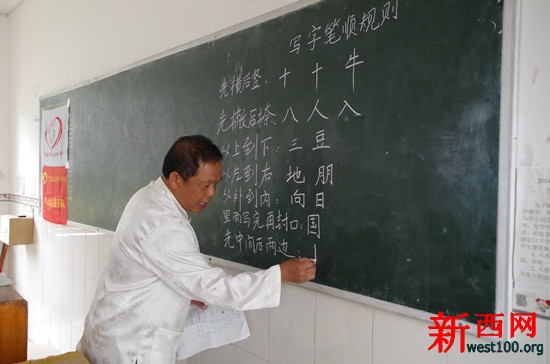 写字笔顺规则
先横后竖：十 十 牛
先撇后捺：八 人 入
从上到下：三 豆
从左到右 地 朋
从外到内：向 日
里面写完再封口：国
先中间后两边：亅
新西网
west100.org